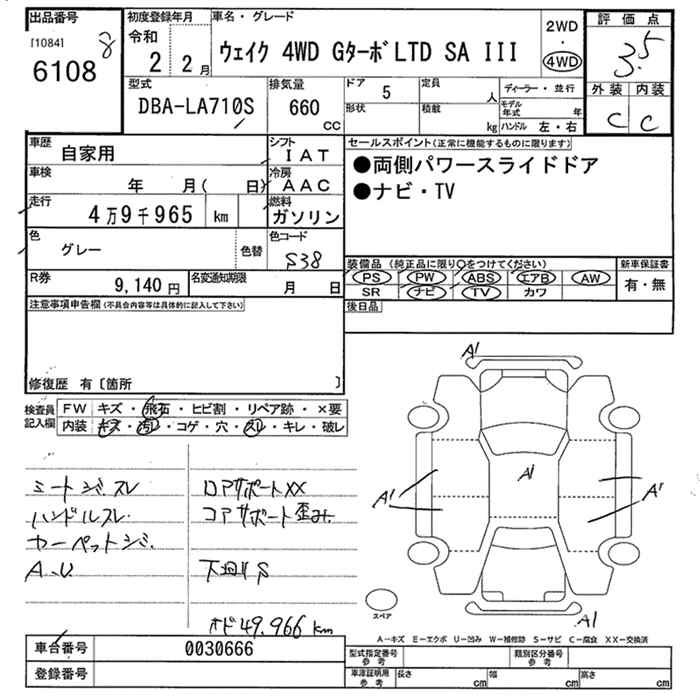 出品番号
[1084] 8
6108
初度登録年月
令和
2 2月
車名・グレード
ウェイク 4WD GターボLTD SA III
2WD
・
4WD
評価点
3.5
外装 内装
C C
型式
DBA-LA710S
排気量
660
CC
ドア 5
定員 人
形状
積載 kg
ディーラー・並行
モデル年式 年
ハンドル 左・右
車歴
自家用
シフト
IAT
車検
年 月( 日)
冷房
AAC
走行
4万9千965 km
燃料
ガソリン
色
グレー
色替
色コード
S38
R券
9,140円
名変通知期限
月 日
セールスポイント(正常に機能するものに限ります)
●両側パワースライドドア
●ナビ・TV
装備品(純正品に限り○をつけてください)
PS PW ABS エアB AW
SR ナビ TV カワ
新車保証書
有・無
後日品
注意事項申告欄(不具合内容等は具体的に記入して下さい)
修復歴 有〔箇所 〕
検査員
記入欄
FW キズ・飛石・ヒビ割・リペア跡・×要
内装 キズ・汚レ・コゲ・穴・スレ・キレ・破レ
シートジミ、スレ
ハンドルスレ
カーペットシミ、
コアサポートXX
コアサポート歪み、
下廻りS
オド49,966km
A1
A1
A1
A1
A1
スペア
A-キズ E-エクボ U-凹み W-補修跡 S-サビ C-腐食 XX-交換済
車台番号 0030666
登録番号
型式指定番号
参考
類別区分番号
参考
車庫証明用
参考
長さ cm 幅 cm 高さ cm